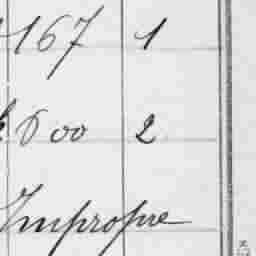 167 1
600 2
Impropre